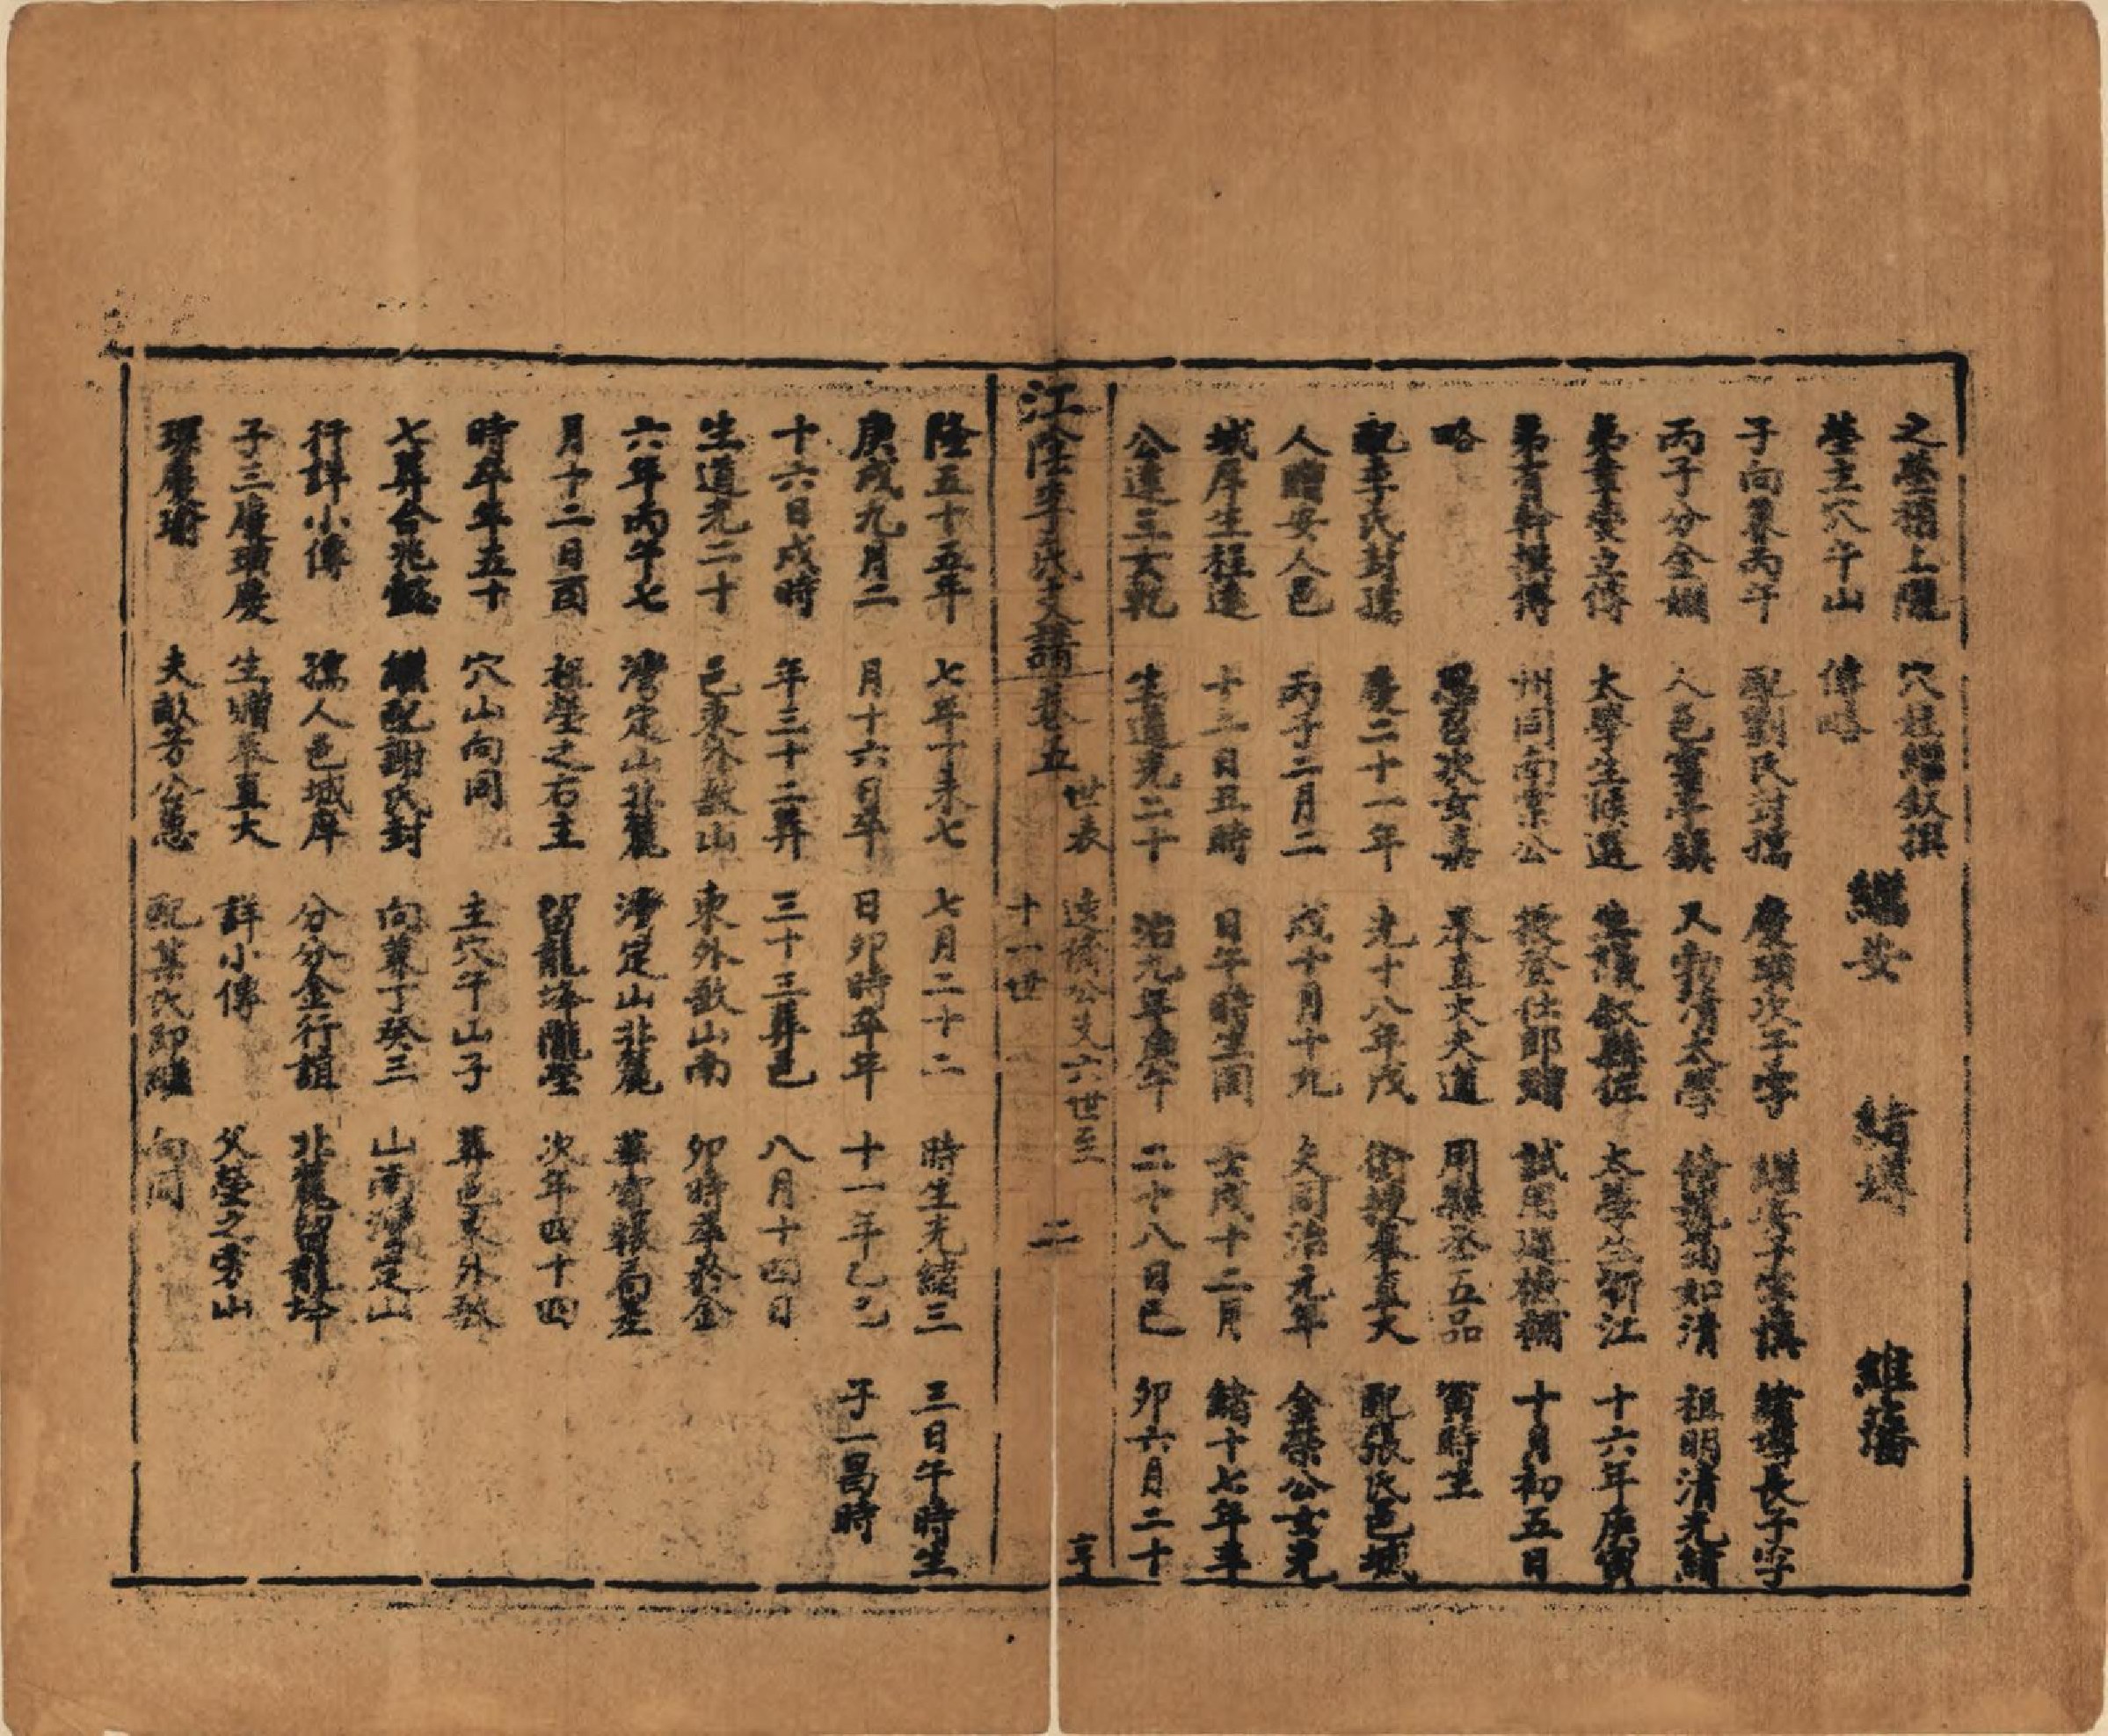 之塋稍上隴
塋主穴午山
子向兼丙午
丙子分金姻
弟章雯立傳
弟肯幹撰傳
略
配李氏封孺
人贈安人邑
城庠生程遠
公達三女乾
隆五十五年
庚戌九月二
十六日戌時
生道光二十
六年丙午七
月十二日酉
時卒年五十
七葬合兆懿
行詳小傳
子三慶璜慶
琛慶瑜
穴姪繼叙撰
傳略
配劉氏封孺
人邑雷亭鎮
太學生候選
州同南棠公
墨召次女嘉
慶二十一年
丙子二月二
十二日丑時
生道光二十
七年丁未七
月十六日卒
年三十二葬
邑東外敔山
灣定山北麓
祖塋之右主
穴山向同
繼配謝氏封
孺人邑城庠
生贈奉直大
夫畝芳公蕙
繼安
慶璜次子字
又勃清太學
生議叙縣佐
授登仕郎贈
奉直大夫道
光十八年戊
戌十月十九
日午時生同
治九年庚午
七月二十二
日卯時卒年
三十三葬邑
東外敔山南
灣定山北麓
留龍埄隴塋
主穴午山子
向兼丁癸三
分分金行誼
詳小傳
配某氏即繼
緒增
繼安子字慎
修號菊如清
太學生浙江
試用巡檢
用縣丞五品
銜授奉直大
夫同治元年
壬戌十二月
二十八日巳
時生光緒三
十一年乙巳
八月十四日
卯時卒於金
華局差
次年四十四
葬邑東外敔
山南灣定山
北麓留龍埄
父塋之旁山
向同
維藩
緒增長子字
祖明清光緒
十六年庚寅
十月初五日
寅時生
配張氏邑城
金榮公女光
緒十七年辛
卯六月二十
三日午時生
子一昌時
江陰李氏支譜卷五
世表
遠橋公支六世至
十一世
二
亨